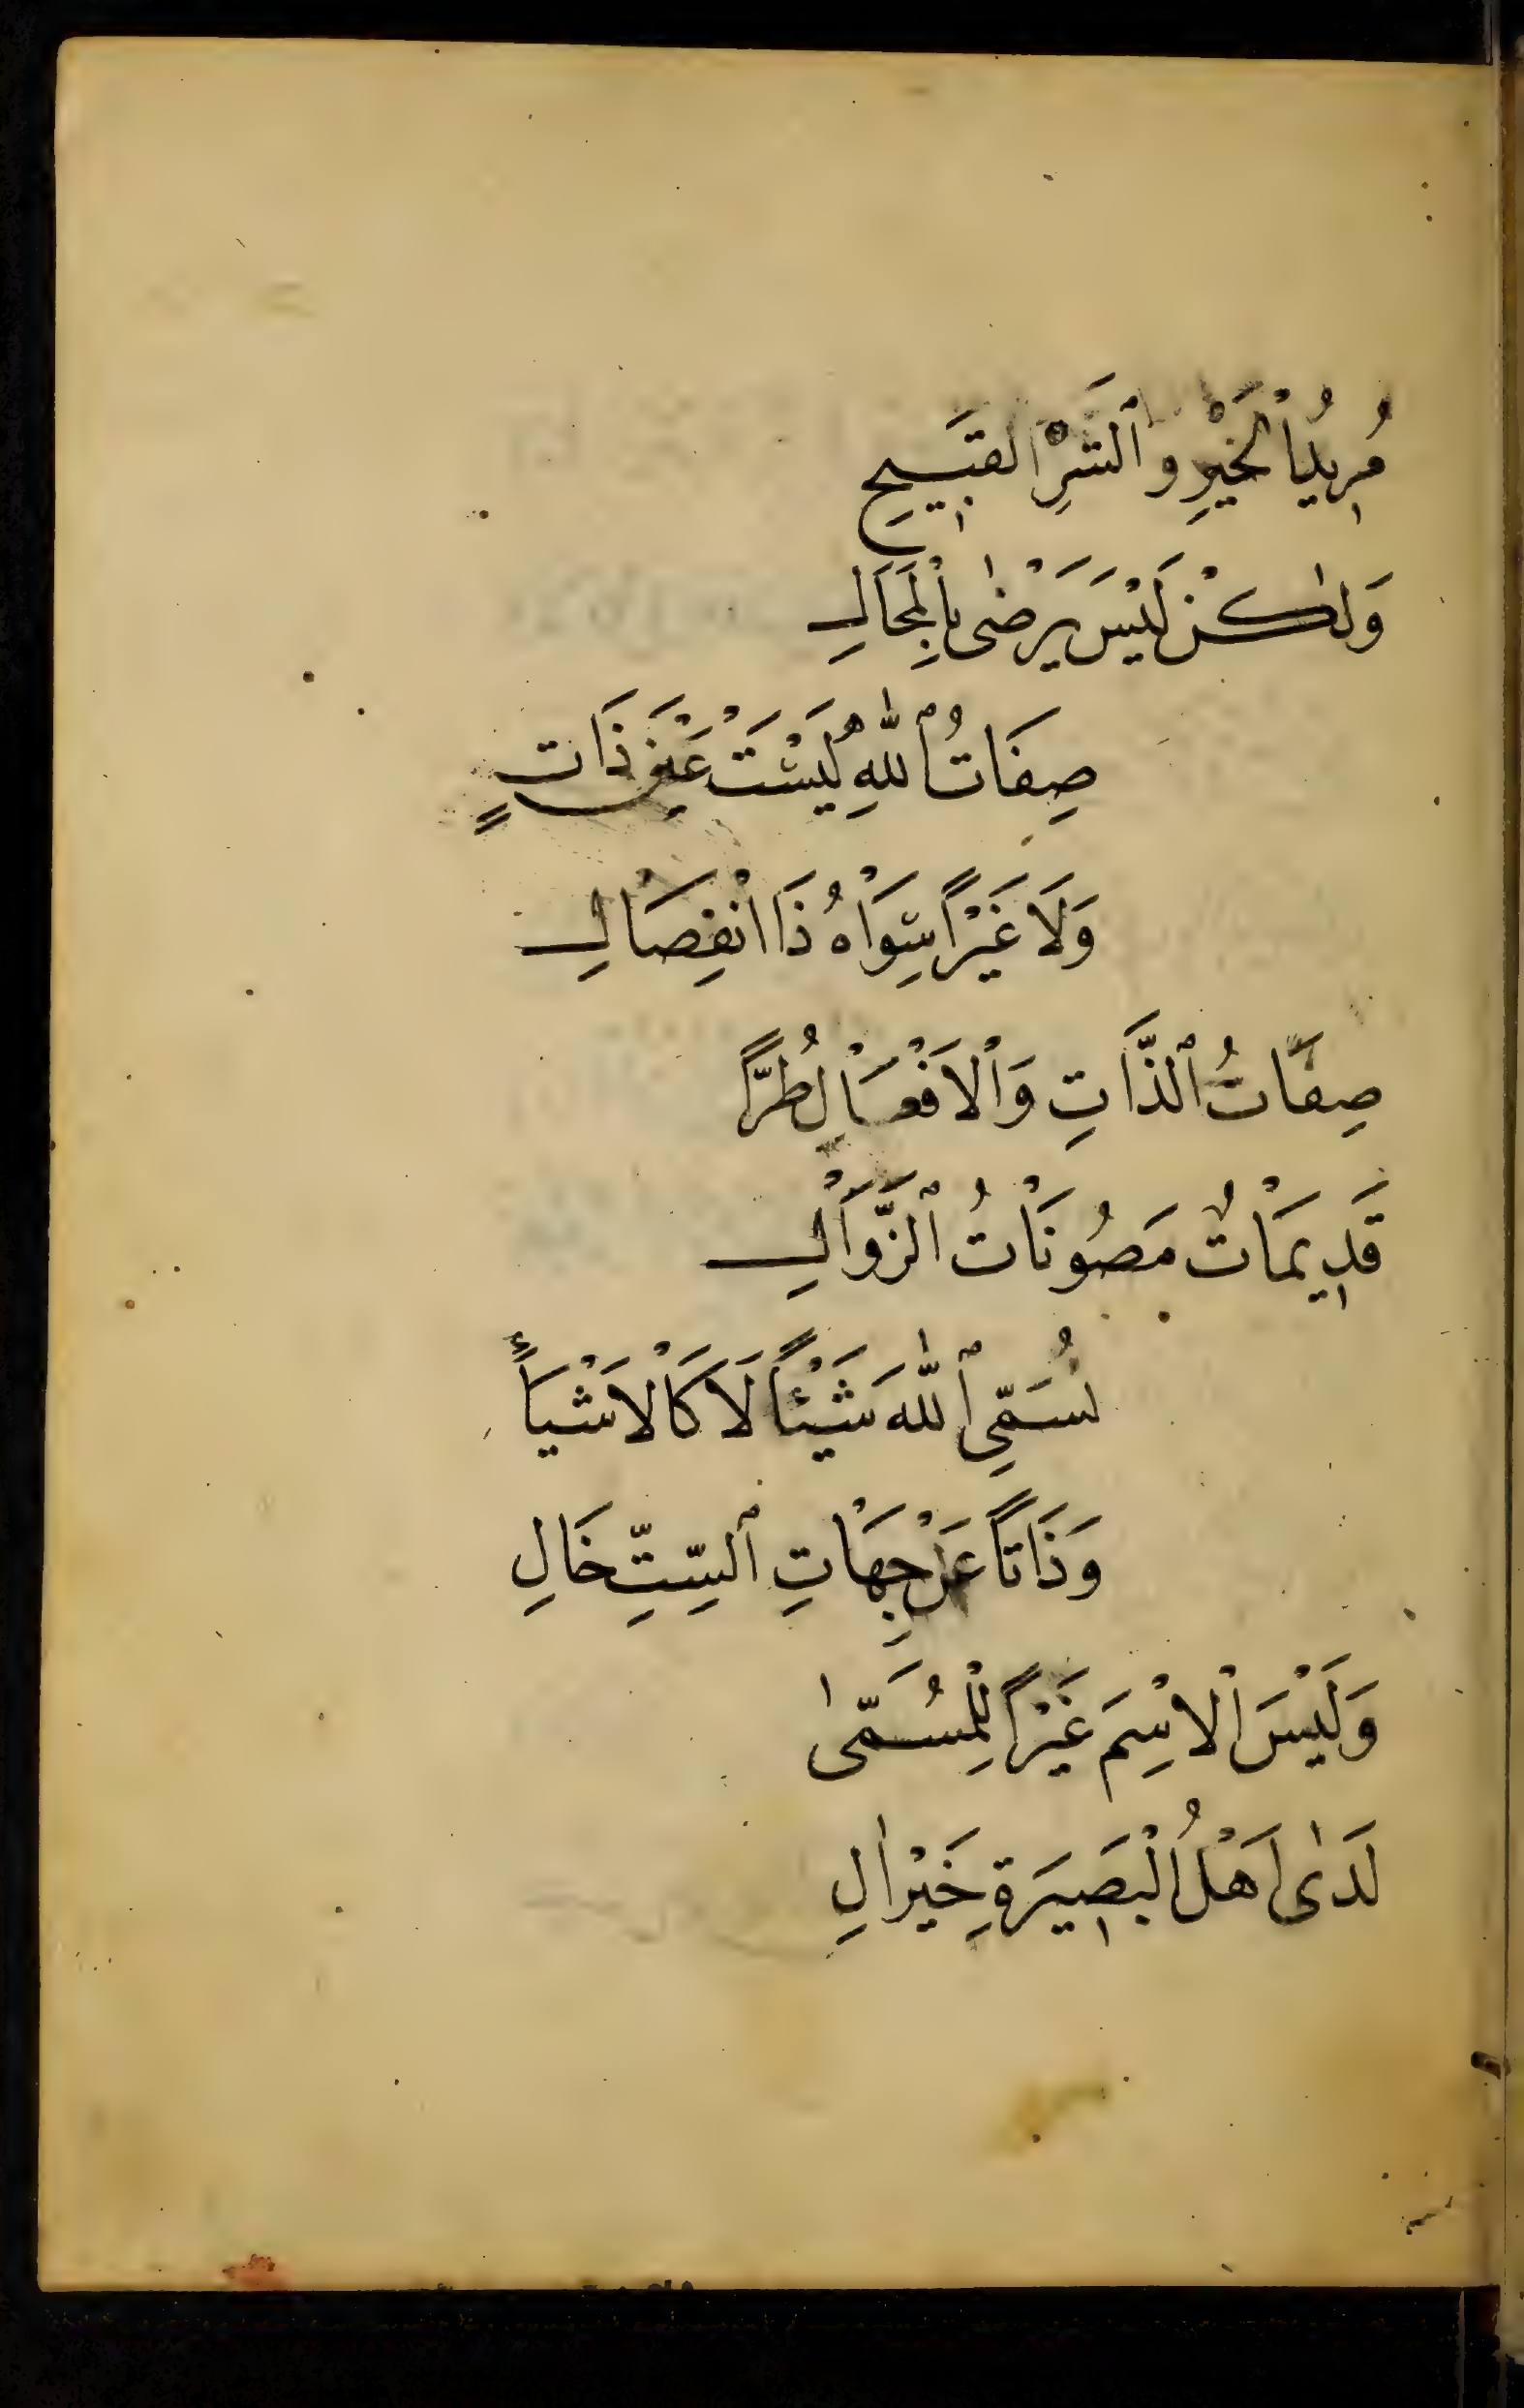 مُرِيدُ الْخَيْرِ وَالشَّرِّ الْقَبِيحِ
وَلٰكِنْ لَيْسَ يَرْضٰى بِالْمَحَالِ
صِفَاتُ اللّٰهِ لَيْسَتْ عَيْنَ ذَاتٍ
وَلَا غَيْرًا سِوَاهُ ذَا انْفِصَالِ
صِفَاتُ الذَّاتِ وَالْاَفْعَالِ طُرًّا
قَدِيمَاتٌ مَصُونَاتُ الزَّوَالِ
نُسَمِّي اللّٰهَ شَيْئًا لَا كَالْاَشْيَاءِ
وَذَاتًا عَنْ جِهَاتِ السِّتِّ خَالِ
وَلَيْسَ الْاِسْمَ غَيْرًا لِلْمُسَمّٰى
لَدٰى اَهْلُ الْبَصِيرَةِ خَيْرَ اٰلِ